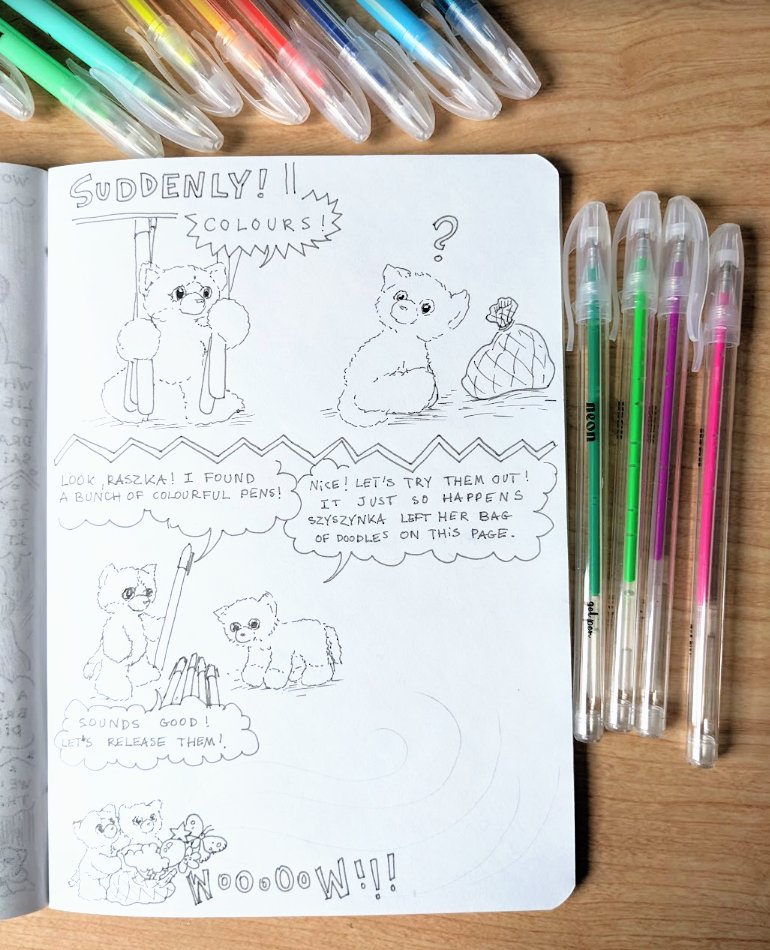 SUDDENLY!
COLOURS!
?
LOOK, RASZKA! I FOUND
A BUNCH OF COLOURFUL PENS!
NICE! LET'S TRY THEM OUT!
IT JUST SO HAPPENS
SZYSZYNKA LEFT HER BAG
OF DOODLES ON THIS PAGE.
SOUNDS GOOD!
LET'S RELEASE THEM!
WOOOOOW!!!
neon
gel pen